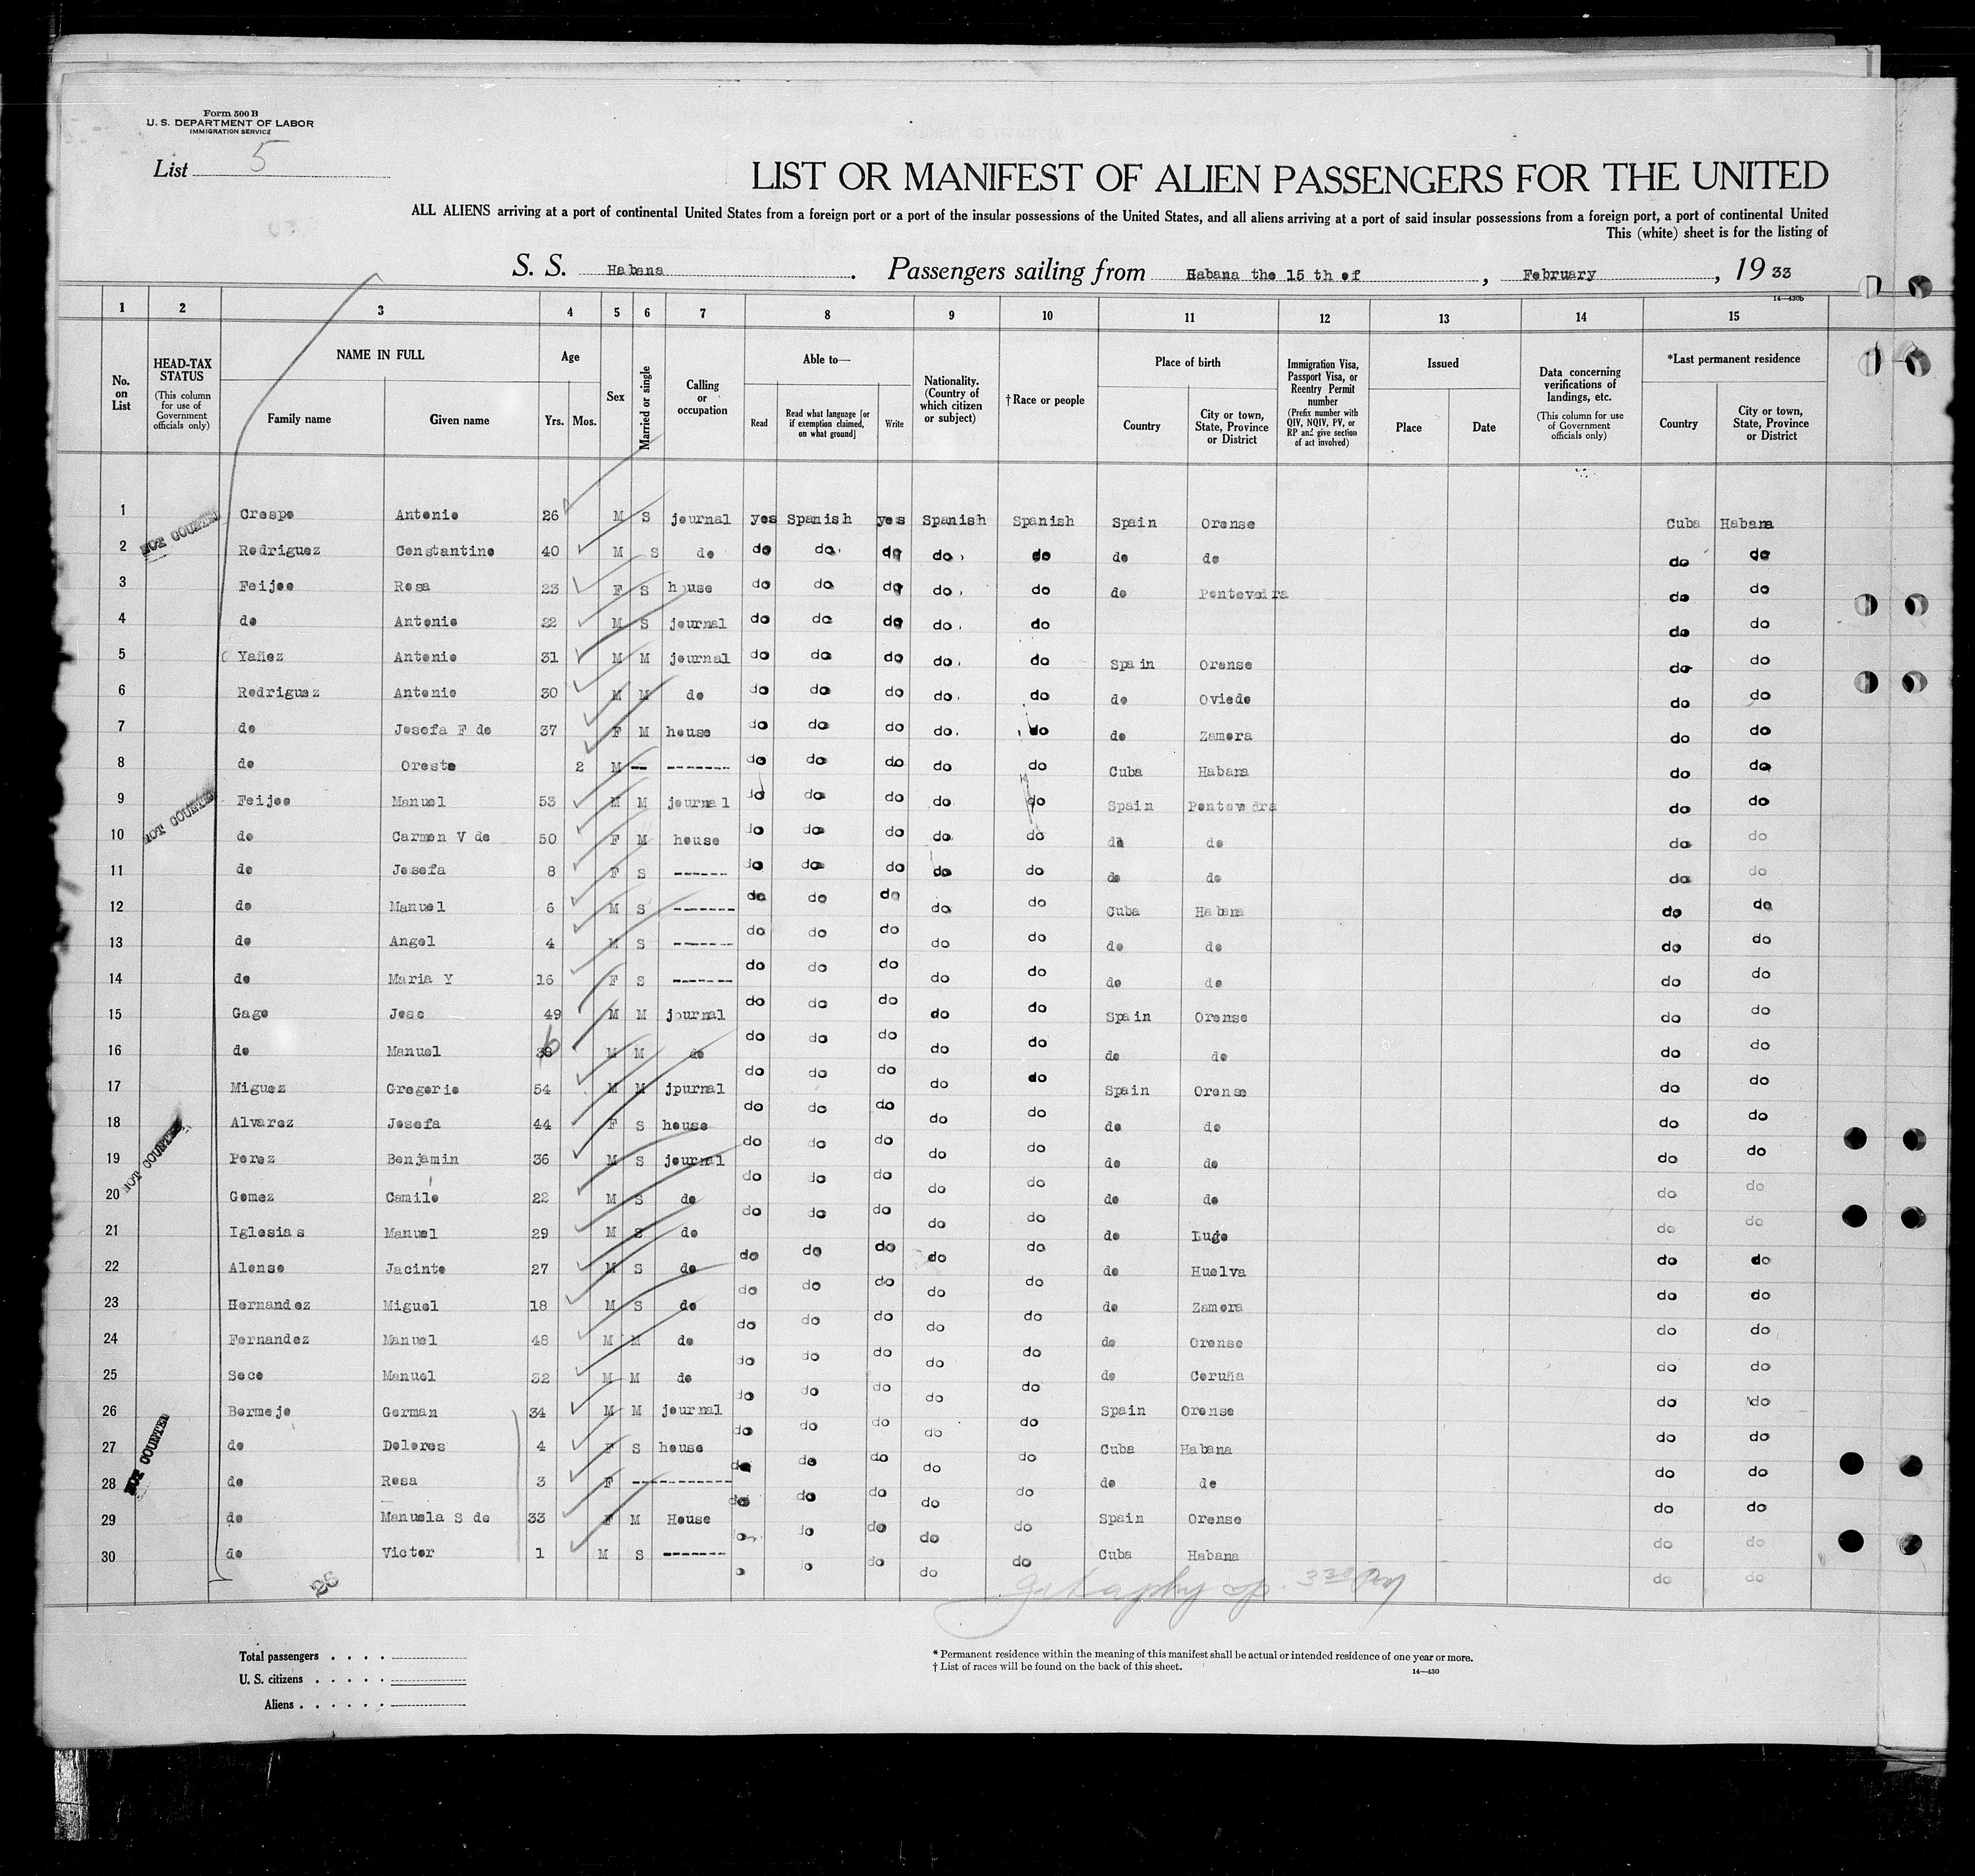 Form 500 B
U. S. DEPARTMENT OF LABOR
IMMIGRATION SERVICE
List 5
LIST OR MANIFEST OF ALIEN PASSENGERS FOR THE UNITED
ALL ALIENS arriving at a port of continental United States from a foreign port or a port of the insular possessions of the United States, and all aliens arriving at a port of said insular possessions from a foreign port, a port of continental United
This (white) sheet is for the listing of
S. S. Habana . Passengers sailing from Habana the 15 th of , February , 19 33
14—430b
1 2 3 4 5 6 7 8 9 10 11 12 13 14 15
No. on List
HEAD-TAX STATUS (This column for use of Government officials only)
NAME IN FULL Family name Given name
Age Yrs. Mos.
Sex
Married or single
Calling or occupation
Able to— Read Read what language [or if exemption claimed, on what ground] Write
Nationality. (Country of which citizen or subject)
†Race or people
Place of birth Country City or town, State, Province or District
Immigration Visa, Passport Visa, or Reentry Permit number (Prefix number with QIV, NQIV, PV, or RP and give section of act involved)
Issued Place Date
Data concerning verifications of landings, etc. (This column for use of Government officials only)
*Last permanent residence Country City or town, State, Province or District
1 Crespo Antonio 26 M S journal yes Spanish yes Spanish Spanish Spain Orense Cuba Habana
NOT COUNTED
2 Rodriguez Constantino 40 M S do do do do do do do do do do
3 Feijoo Rosa 23 F S house do do do do do do Pontevedra do do
4 do Antonio 22 M S journal do do do do do do do
5 Yañez Antonio 31 M M journal do do do do do Spain Orense do do
6 Rodriguez Antonio 30 M M do do do do do do do Oviedo do do
7 do Josefa F de 37 F M house do do do do do do Zamora do do
8 do Oreste 2 M -- ------- do do do do do Cuba Habana do do
9 Feijoo Manuel 53 M M journal do do do do do Spain Pontevedra do do
NOT COUNTED
10 do Carmen V de 50 F M house do do do do do do do do do
11 do Josefa 8 F S ------ do do do do do do do do do
12 do Manuel 6 M S ------- do do do do do Cuba Habana do do
13 do Angel 4 M S ------- do do do do do do do do do
14 do Maria Y 16 F S ------- do do do do do do do do do
15 Gago Jose 49 M M journal do do do do do Spain Orense do do
16 do Manuel M M do do do do do do do do do do
17 Miguez Gregorio 54 M M jpurnal do do do do do Spain Orense do do
18 Alvarez Josefa 44 F S house do do do do do do do do do
NOT COUNTED
19 Perez Benjamin 36 M S journal do do do do do do do do do
20 Gomez Camilo 22 M S do do do do do do do do do do
21 Iglesias Manuel 29 M S do do do do do do do Lugo do do
22 Alonso Jacinto 27 M S do do do do do do do Huelva do do
23 Hernandez Miguel 18 M S do do do do do do do Zamora do do
24 Fernandez Manuel 48 M M do do do do do do do Orense do do
25 Soco Manuel 32 M M do do do do do do do Coruña do do
26 Bermejo German 34 M M journal do do do do do Spain Orense do do
27 do Dolores 4 F S house do do do do do Cuba Habana do do
NOT COUNTED
28 do Rosa 3 F ----------- do do do do do do do do do
29 do Manuela S de 33 F M House do do do do do Spain Orense do do
30 do Victor 1 M S ------- do do do do do Cuba Habana do do
26
Total passengers
U. S. citizens
Aliens
* Permanent residence within the meaning of this manifest shall be actual or intended residence of one year or more.
† List of races will be found on the back of this sheet.
14—430